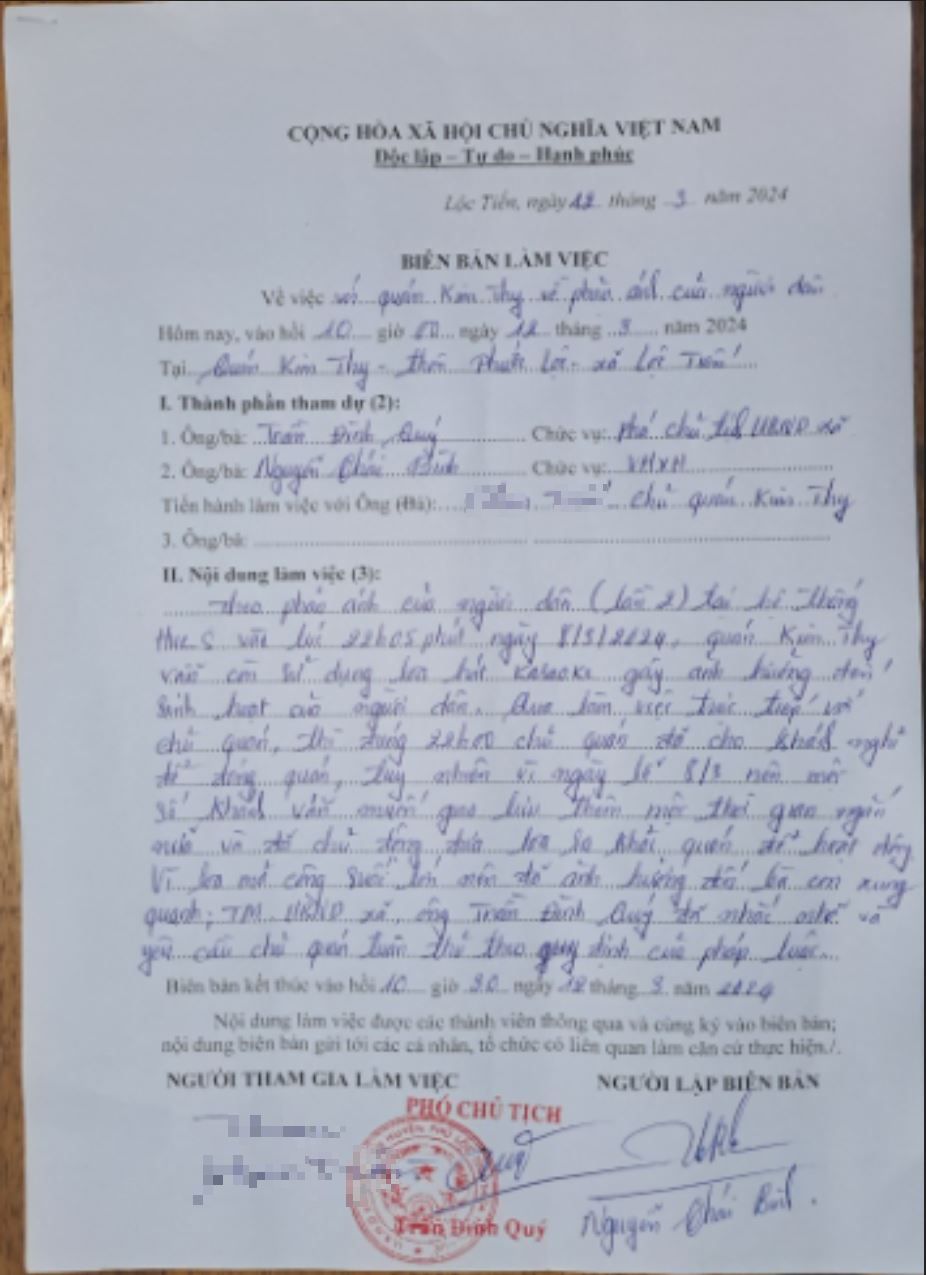 CỘNG HÒA XÃ HỘI CHỦ NGHĨA VIỆT NAM
Độc lập – Tự do – Hạnh phúc
Lộc Tiến, ngày 12 tháng 3 năm 2024
BIÊN BẢN LÀM VIỆC
Về việc với quán Kim Thy về phản ánh của người dân
Hôm nay, vào hồi 10 giờ 00 ngày 12 tháng 3 năm 2024
Tại Quán Kim Thy - thôn Phước Lộc - xã Lộc Tiến
I. Thành phần tham dự (2):
1. Ông/bà: Trần Đình Quý Chức vụ: Phó chủ tịch UBND xã
2. Ông/bà: Nguyễn Chái Bình Chức vụ: VHXH
Tiến hành làm việc với Ông (Bà): chủ quán Kim Thy
3. Ông/bà:
II. Nội dung làm việc (3):
Theo phản ánh của người dân (lần 2) tại hệ thống
Hue S vào lúc 22h05 phút ngày 8/3/2024, quán Kim Thy
vẫn còn sử dụng loa hát Karaoke gây ảnh hưởng đến
sinh hoạt của người dân. Qua làm việc trực tiếp với
chủ quán, thì đúng 22h00 chủ quán đã cho khách nghỉ
để đóng quán, tuy nhiên vì ngày lễ 8/3 nên một
số khách vẫn muốn giao lưu thêm một thời gian ngắn
nữa và đã chủ động đưa loa ra khỏi quán để hoạt động
Vì loa mở công suất lớn nên đã ảnh hưởng đến bà con xung
quanh; TM UBND xã, ông Trần Đình Quý đã nhắc nhở và
yêu cầu chủ quán tuân thủ theo quy định của pháp luật.
Biên bản kết thúc vào hồi 10 giờ 30 ngày 12 tháng 3 năm 2024
Nội dung làm việc được các thành viên thông qua và cùng ký vào biên bản;
nội dung biên bản gửi tới các cá nhân, tổ chức có liên quan làm căn cứ thực hiện./.
NGƯỜI THAM GIA LÀM VIỆC NGƯỜI LẬP BIÊN BẢN
PHÓ CHỦ TỊCH
HUYỆN PHÚ LỘC
Trần Đình Quý
Nguyễn Chái Bình